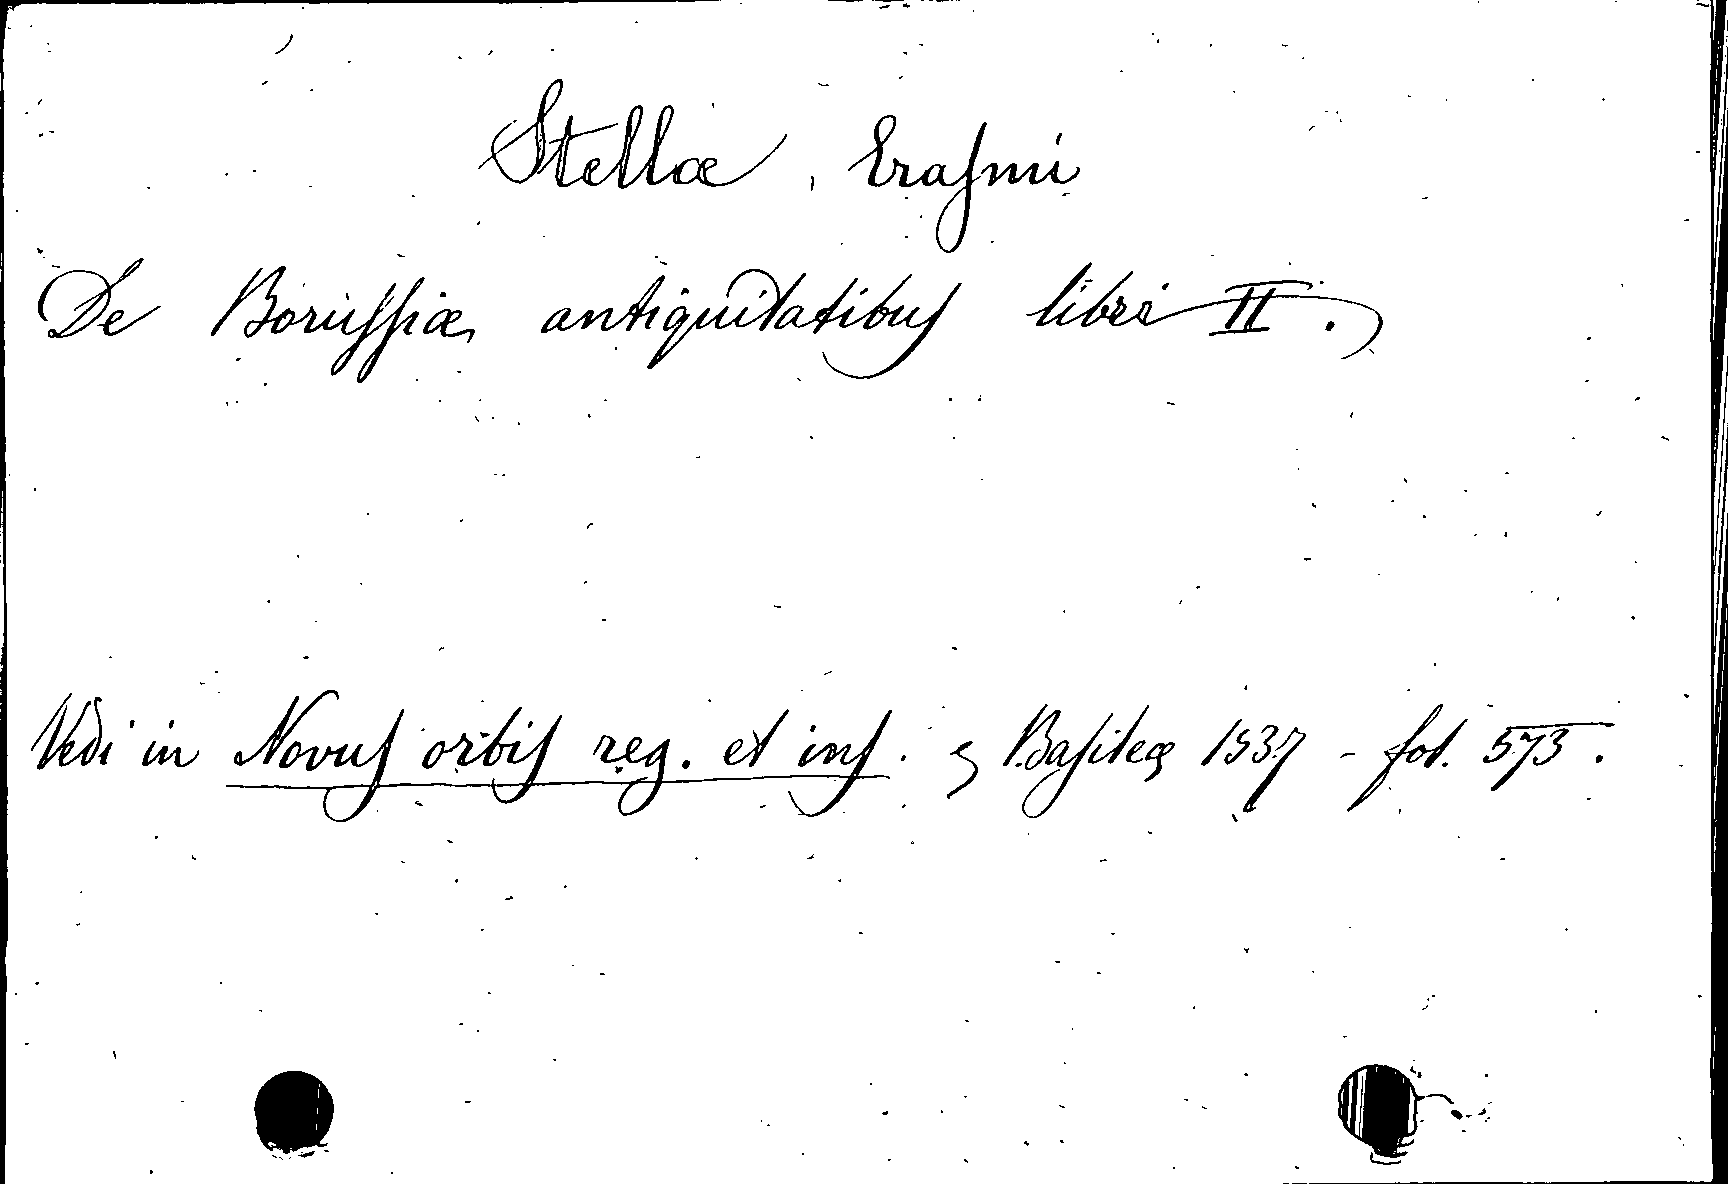 Stellæ, Erasmi
De Borussiæ antiquitatibus libri II.
Vedi in Novus orbis reg. et ins. Basileæ 1537 - fol. 573.